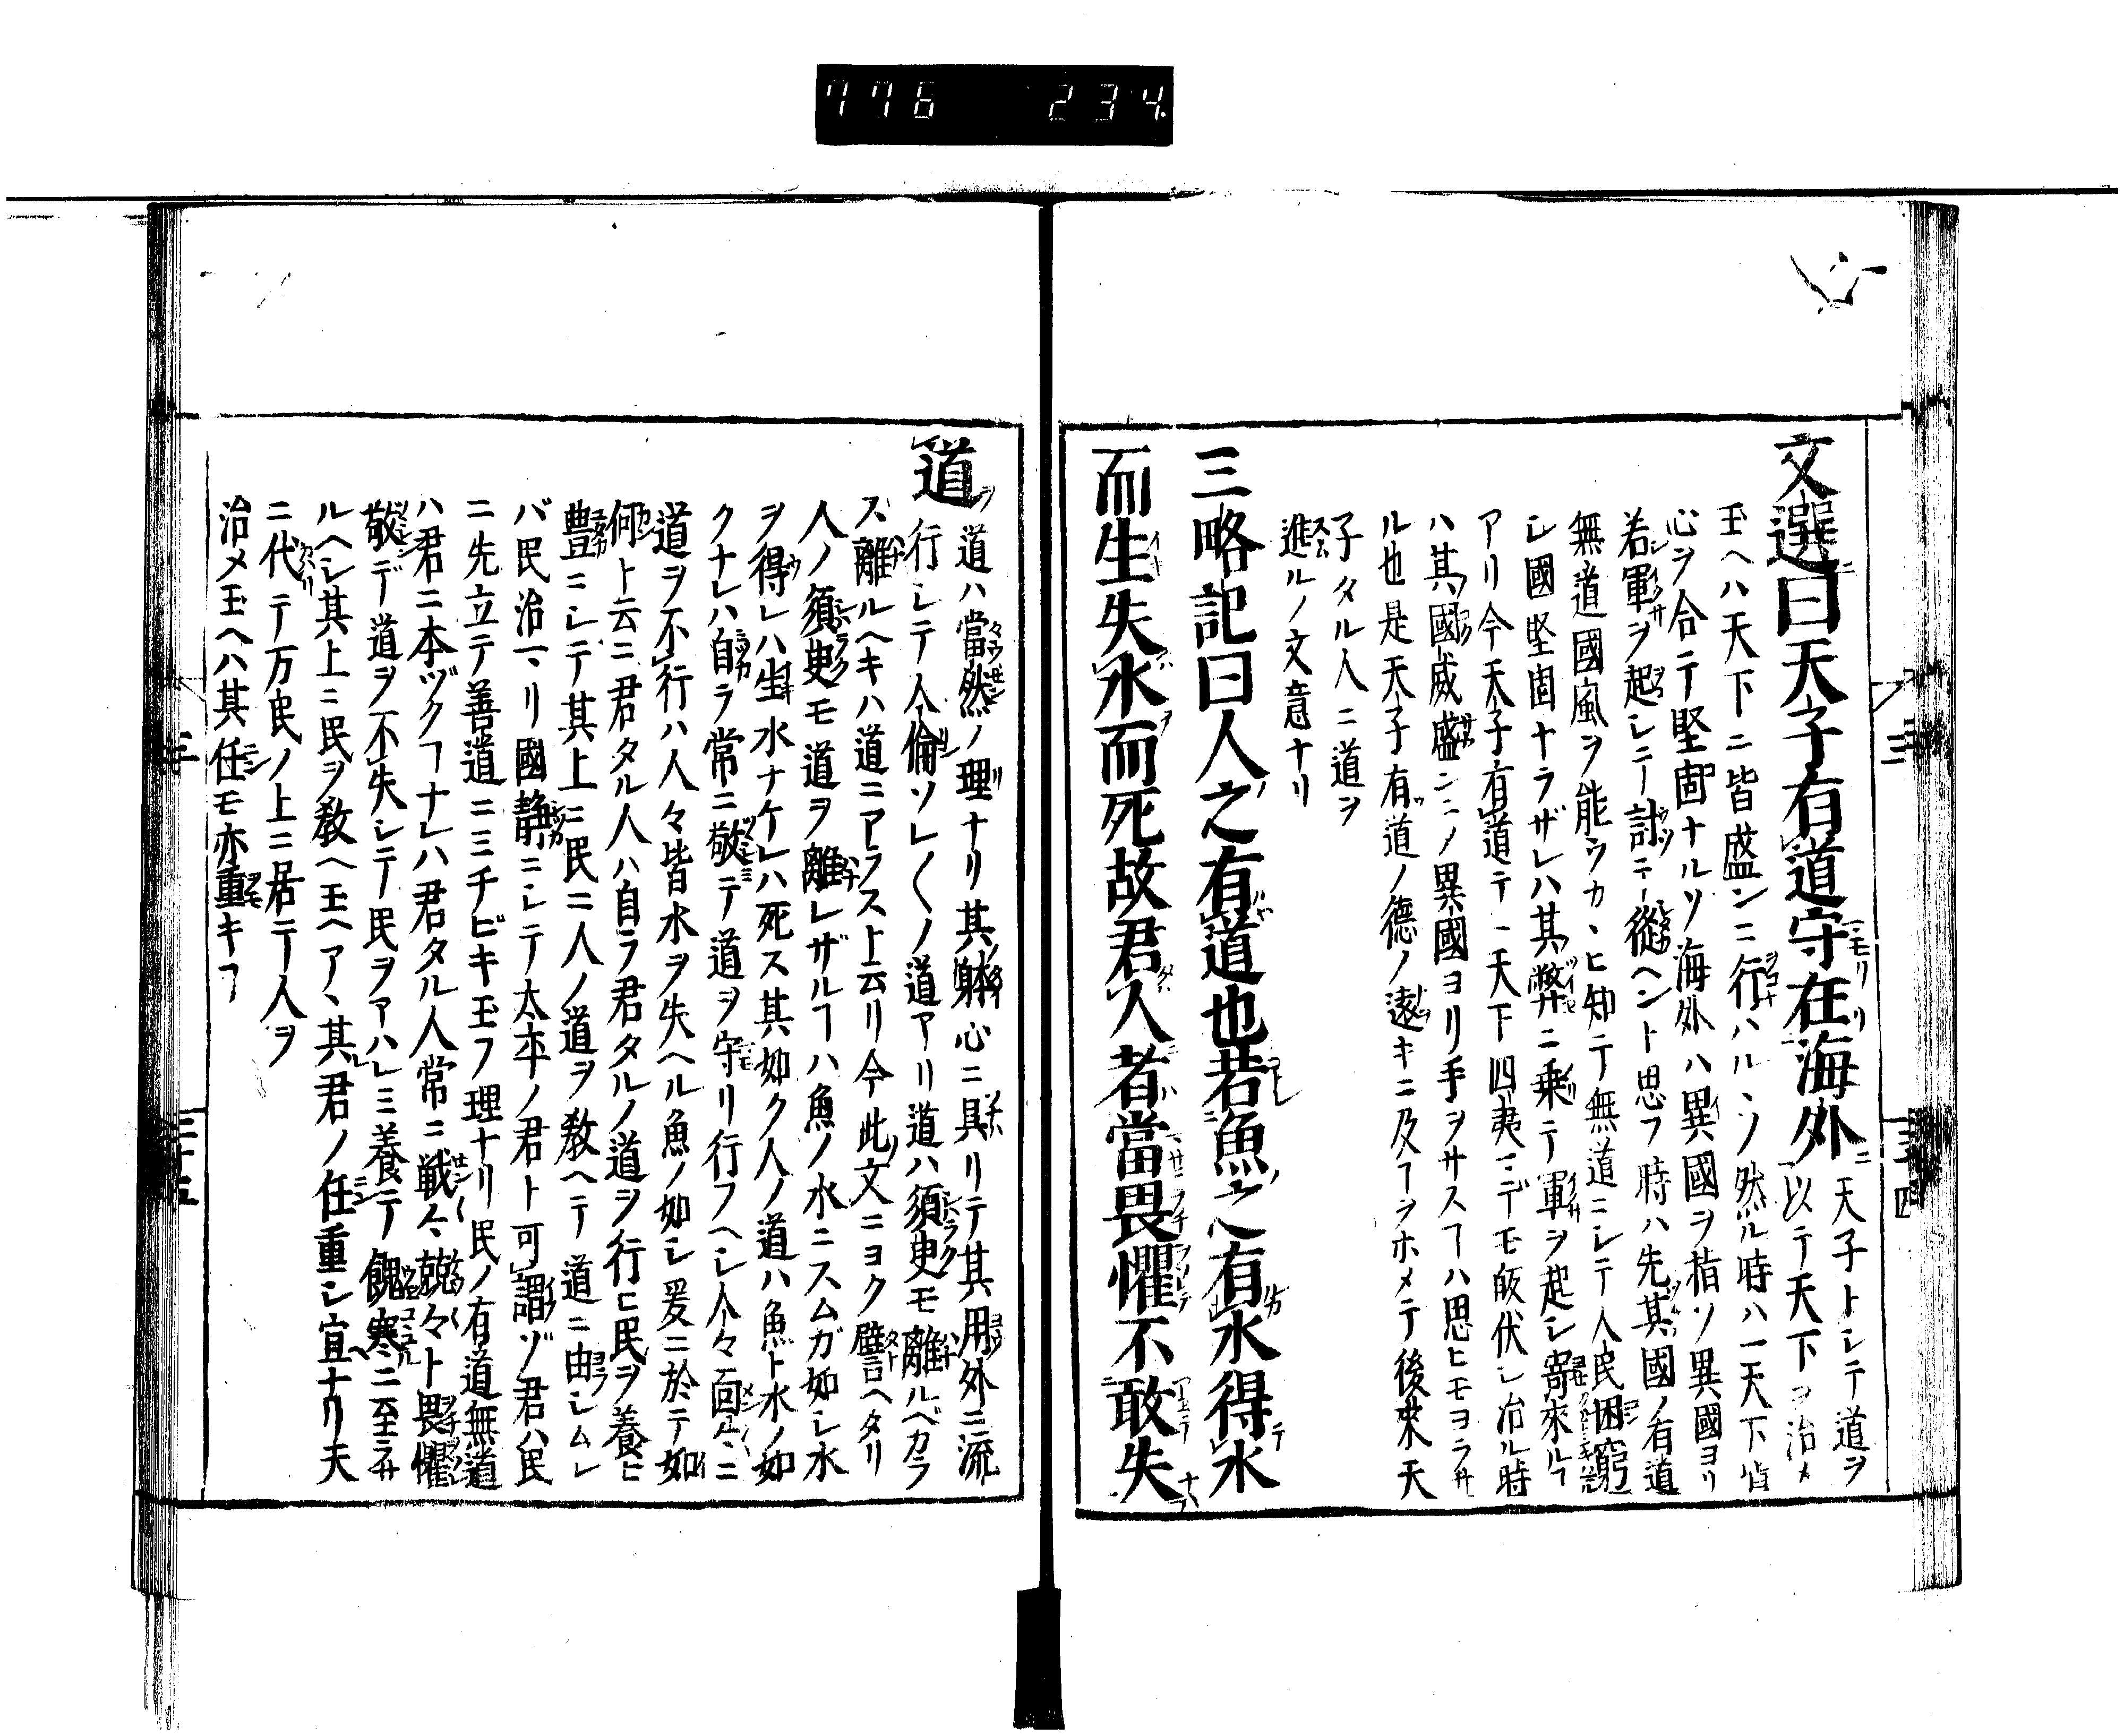 776 234
文選曰天子有道守在海外 天子トシテ道ヲ
以テ天下ヲ治メ
玉ヘハ天下ニ皆盛ンニ行ハルヽソ然ル時ハ一天下皆
心ヲ合テ堅固ナルソ海外ハ異國ヲ指ソ異國ヨリ
若軍ヲ起シニー討ニー從ヘント思フ時ハ先其國ノ有道
無道國風ヲ能ウカヽヒ知テ無道ニシテ人民困窮
シ國堅固ナラザレハ其弊ニ乗テ軍ヲ起シ寄來ルヿ
アリ今天子有道テ一天下四夷ニデモ皈伏シ治ル時
ハ其國威盛ンニノ異國ヨリ手ヲサスヿハ思ヒモヨラサ
ル也是天子有道ノ德ノ遠キニ及フヿヲホメテ後來天
子タル人ニ道ヲ
進ルノ文意ナリ
三略記曰人之有道也若魚之有水得水
而生失水而死故君人者當畏懼不敢失
道 道ハ當然ノ理ナリ其躰心ニ具リテ其用外ニ流
行シテ人倫ソレ〱ノ道アリ道ハ須臾モ離ルベカラ
ス離ルヘキハ道ニアラスト云リ今此文ニヨク譬ヘタリ
人ノ須臾モ道ヲ離レザルヿハ魚ノ水ニスムガ如シ水
ヲ得レハ生水ナケレハ死ス其如ク人ノ道ハ魚ト水ノ如
クナレハ自ラ常ニ敬テ道ヲ守リ行フヘシ人々面々ニ
道ヲ不行ハ人々皆水ヲ失ヘル魚ノ如シ爰ニ於テ如
何ト云ニ君タル人ハ自ラ君タルノ道ヲ行ヒ民ヲ養ヒ
豊ニシテ其上ニ民ニ人ノ道ヲ敎ヘテ道ニ由シムレ
バ民治マリ國静ニシテ太平ノ君ト可謂ゾ君ハ民
ニ先立テ善道ニミチビキ玉フ理ナリ民ノ有道無道
ハ君ニ本ヅクヿナレハ君タル人常ニ戦々兢々ト畏懼
敬デ道ヲ不失シテ民ヲアハレミ養テ餽寒ニ至ラサ
ルヘシ其上ニ民ヲ敎ヘ玉ヘアヽ其君ノ任重シ宜ナリ天
ニ代テ万民ノ上ニ居テ人ヲ
治メ玉ヘハ其任モ亦重キヿ